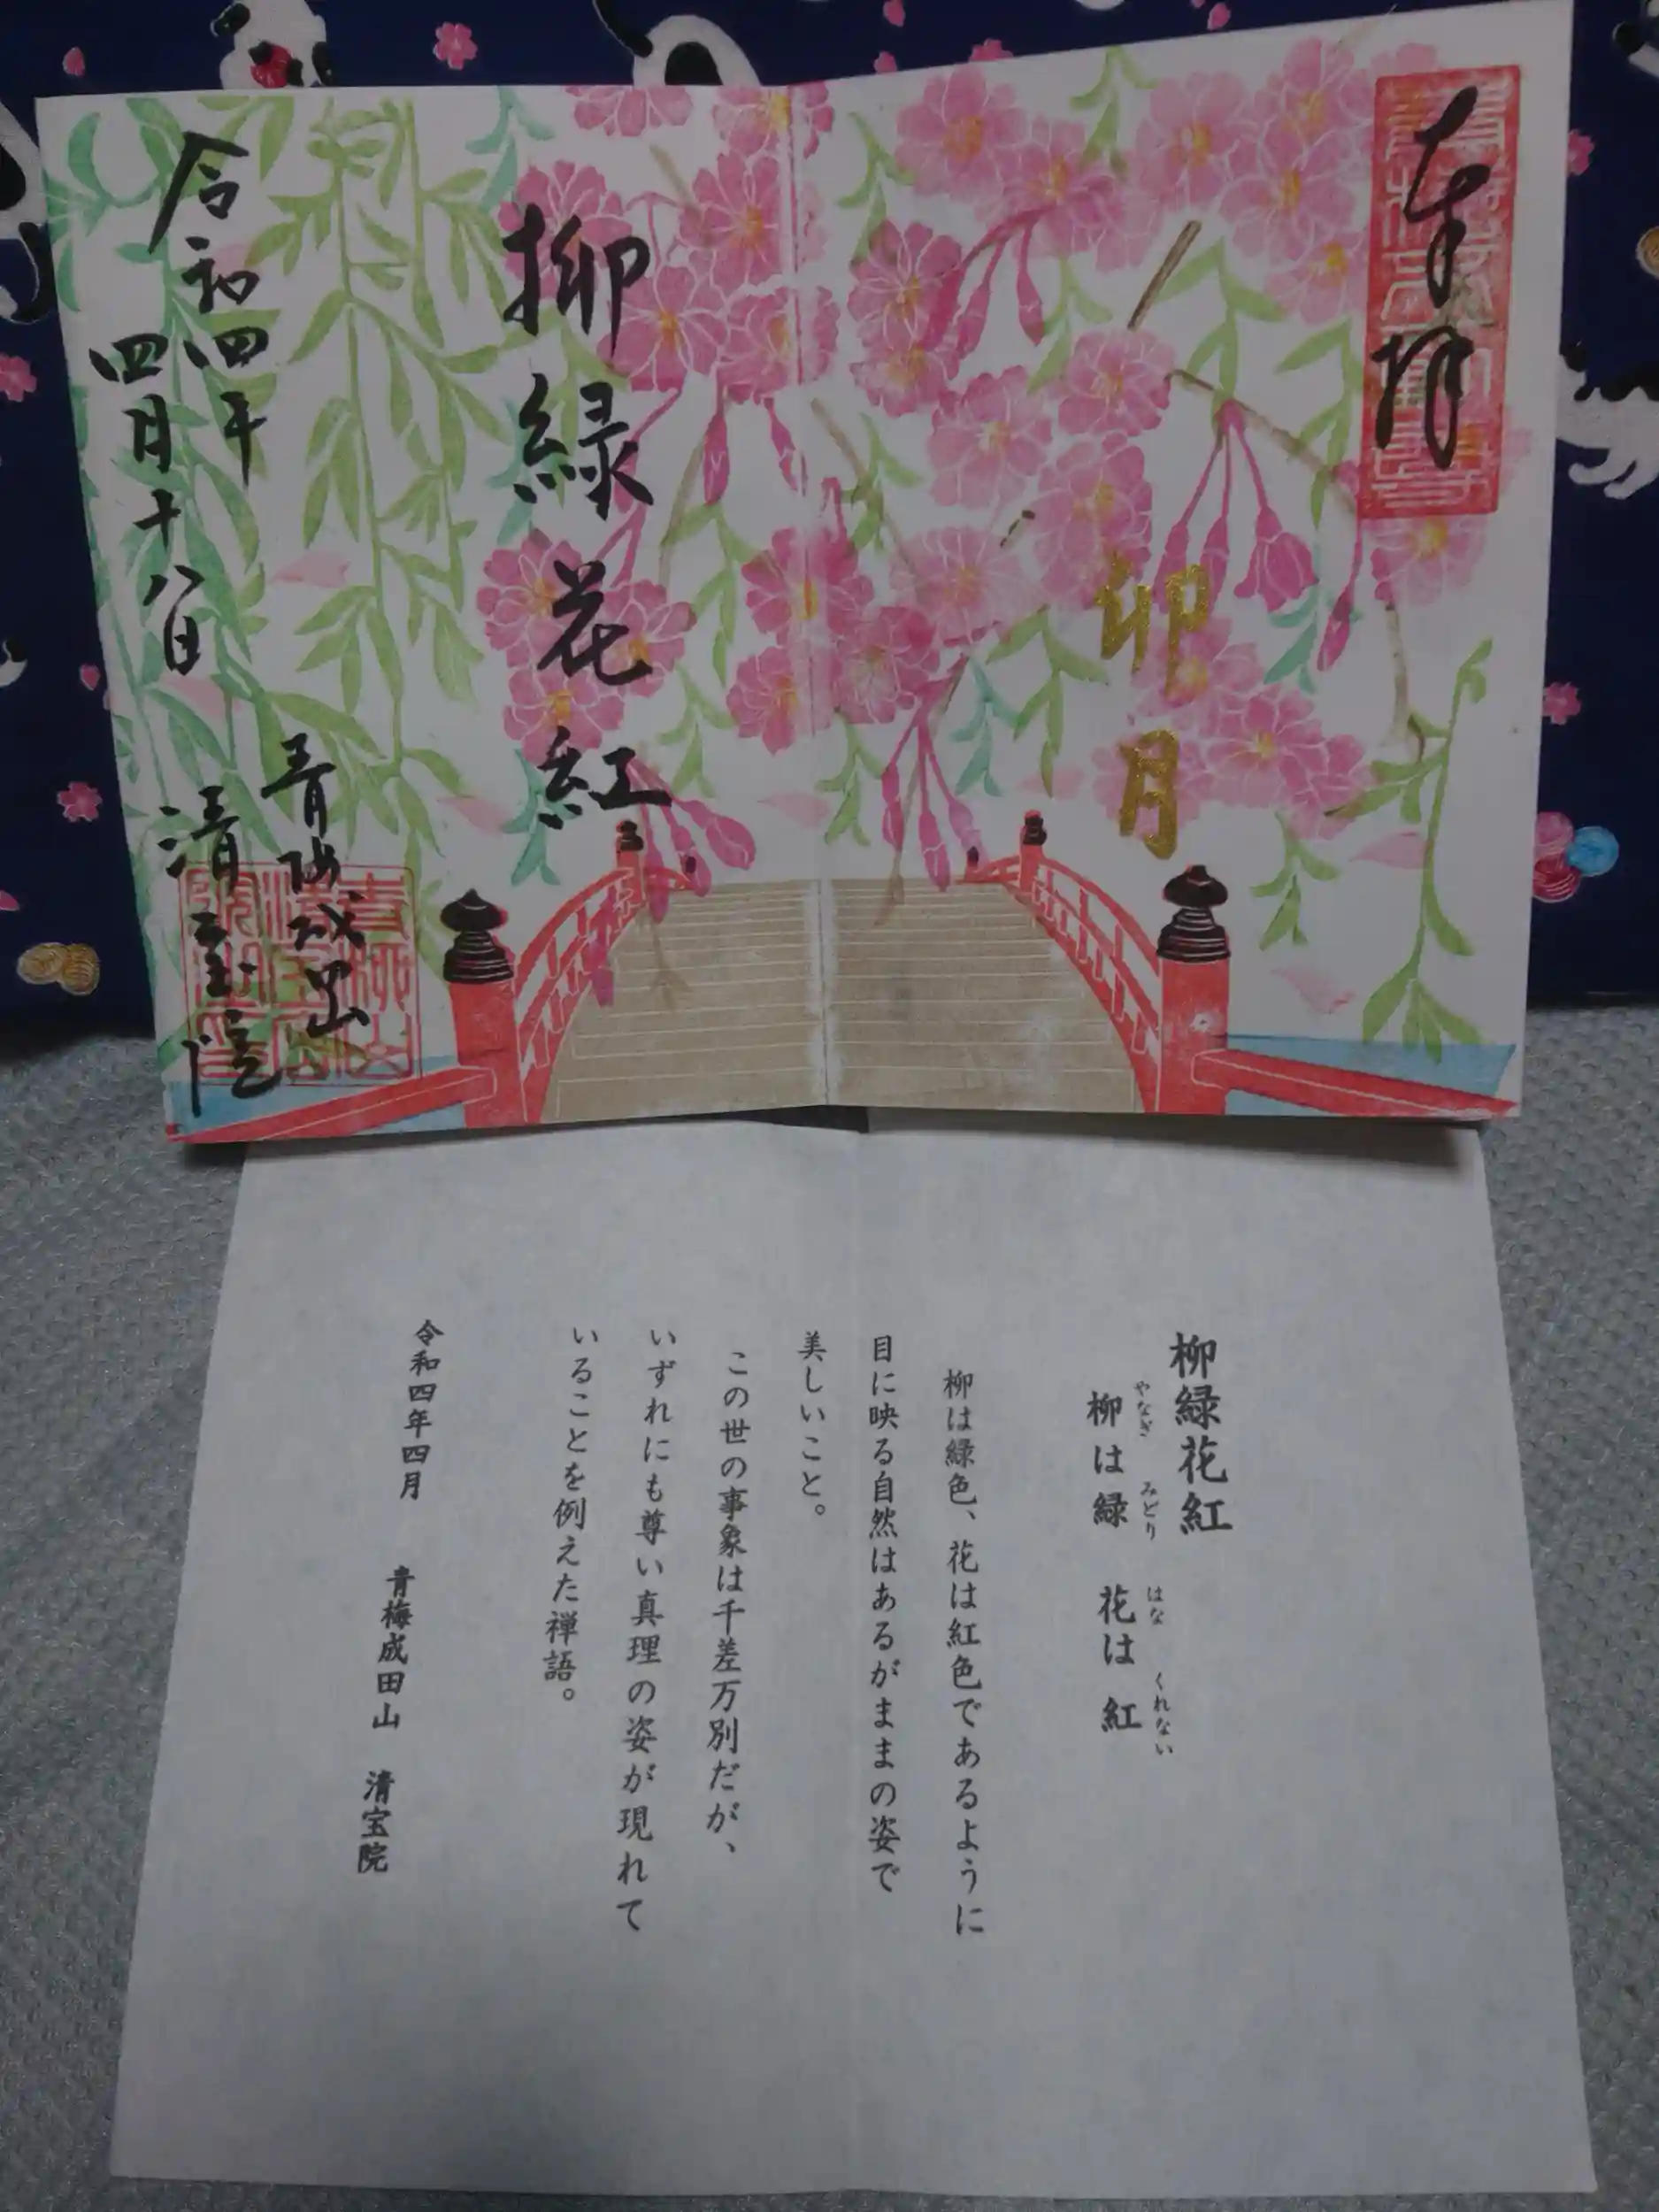 奉拝
卯月
柳緑花紅
令和四年
四月十八日
青梅成田山
清宝院
柳緑花紅
やなぎ みどり はな くれない
柳は緑 花は紅
柳は緑色、花は紅色であるように
目に映る自然はあるがままの姿で
美しいこと。
この世の事象は千差万別だが、
いずれにも尊い真理の姿が現れて
いることを例えた禅語。
令和四年四月
青梅成田山 清宝院